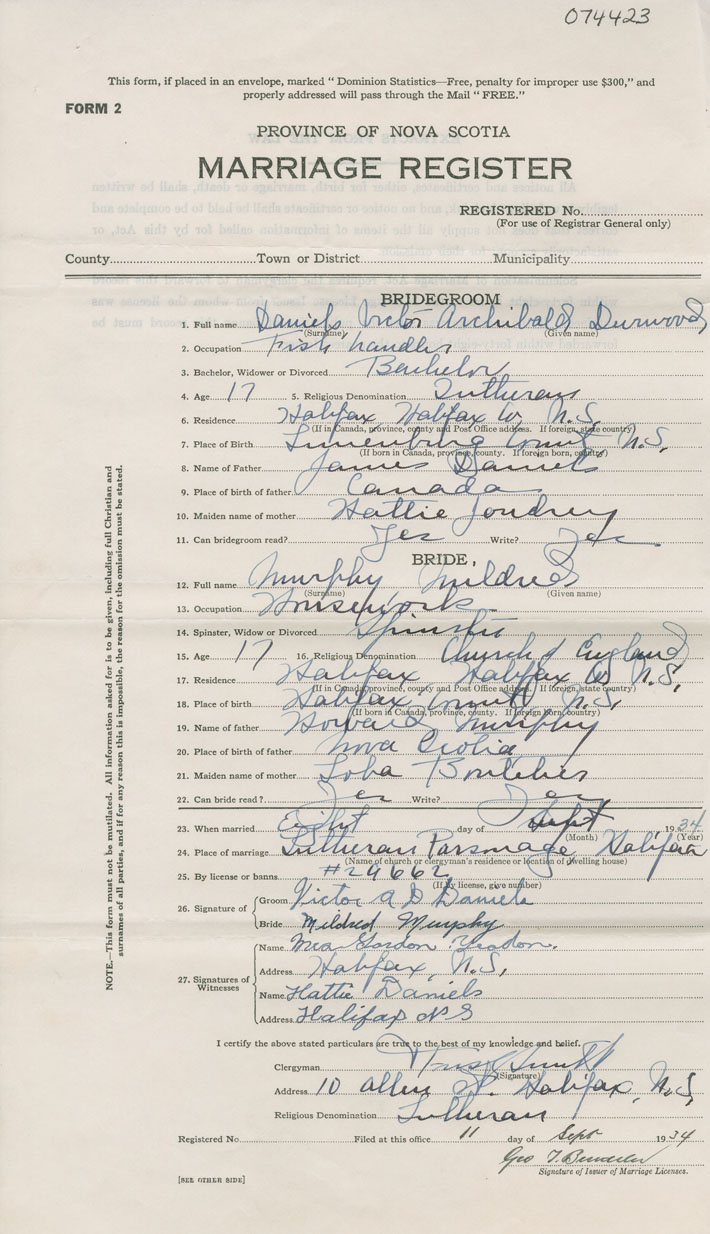 074423
This form, if placed in an envelope, marked " Dominion Statistics—Free, penalty for improper use $300," and
properly addressed will pass through the Mail " FREE."
FORM 2
PROVINCE OF NOVA SCOTIA
MARRIAGE REGISTER
REGISTERED No.
(For use of Registrar General only)
County Town or District Municipality
BRIDEGROOM
1. Full name Daniels Victor Archibald Durwood
(Surname) (Given name)
2. Occupation Fish handler
3. Bachelor, Widower or Divorced Bachelor
4. Age 17 5. Religious Denomination Lutheran
6. Residence Halifax Halifax Co N.S.
(If in Canada, province, county and Post Office address. If foreign, state country)
7. Place of Birth Lunenburg County N.S.
(If born in Canada, province, county. If foreign born, country)
8. Name of Father James Daniels
9. Place of birth of father Canada
10. Maiden name of mother Hattie Joudrey
11. Can bridegroom read? Yes Write? Yes
BRIDE,
12. Full name Murphy Mildred
(Surname) (Given name)
13. Occupation Housework
14. Spinster, Widow or Divorced Spinster
15. Age 17 16. Religious Denomination Church of England
17. Residence Halifax Halifax Co N.S.
(If in Canada, province, county and Post Office address. If foreign, state country)
18. Place of birth Halifax County N.S.
(If born in Canada, province, county. If foreign born, country)
19. Name of father Howard Murphy
20. Place of birth of father Nova Scotia
21. Maiden name of mother Boutilier
22. Can bride read? Yes Write? Yes
23. When married Eight day of Sept 1934
(Month) (Year)
24. Place of marriage Lutheran Parsonage Halifax
(Name of church or clergyman's residence or location of dwelling house)
25. By license or banns #29662
(If by license, give number)
26. Signature of
Groom Victor A D Daniels
Bride Mildred Murphy
27. Signatures of Witnesses
Name Mrs Gordon
Address Halifax, N.S.
Name Hattie Daniels
Address Halifax N S
I certify the above stated particulars are true to the best of my knowledge and belief.
Clergyman
(Signature)
Address 10 Allen St. Halifax, N.S.
Religious Denomination Lutheran
Registered No. Filed at this office 11 day of Sept 1934
Geo T.
Signature of Issuer of Marriage Licenses.
[SEE OTHER SIDE]
NOTE.—This form must not be mutilated. All information asked for is to be given, including full Christian and
surnames of all parties, and if for any reason this is impossible, the reason for the omission must be stated.